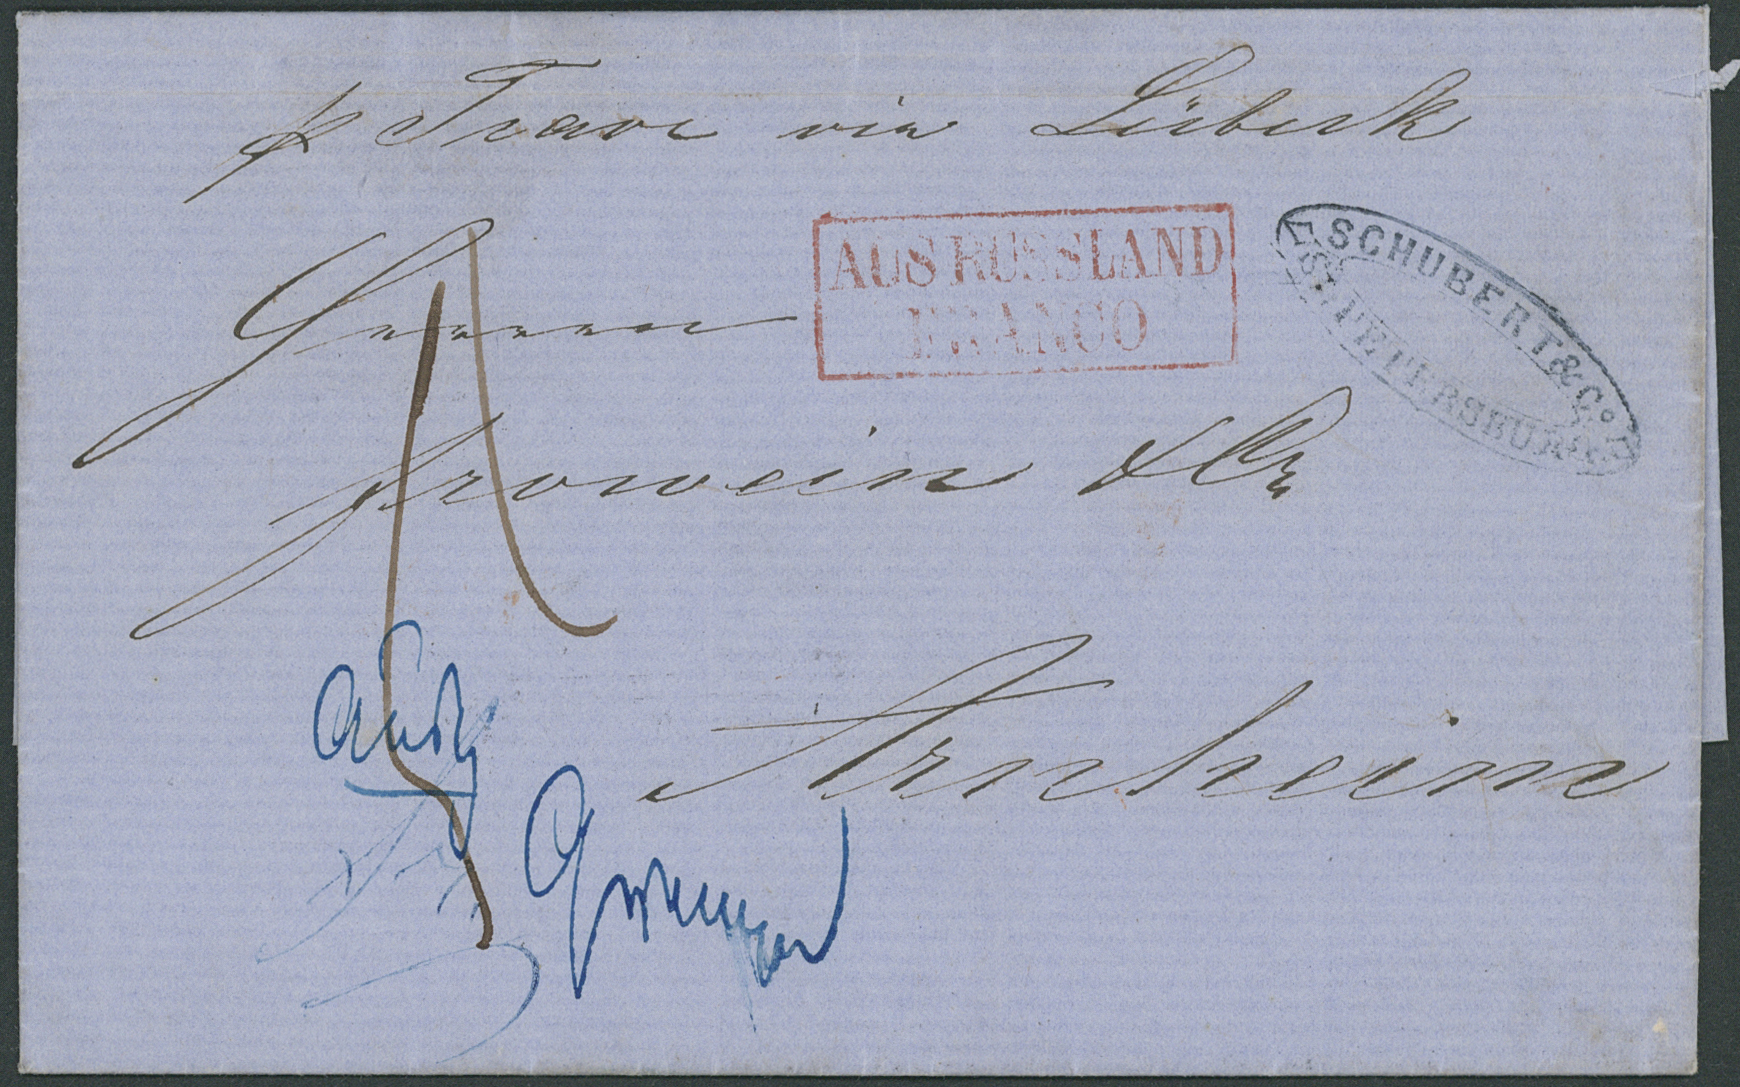 p Trave via Lübeck
Herren
AUS RUSSLAND
FRANCO
SCHUBERT & Co.
ST. PETERSBURG
Frowein & Co
Arnheim